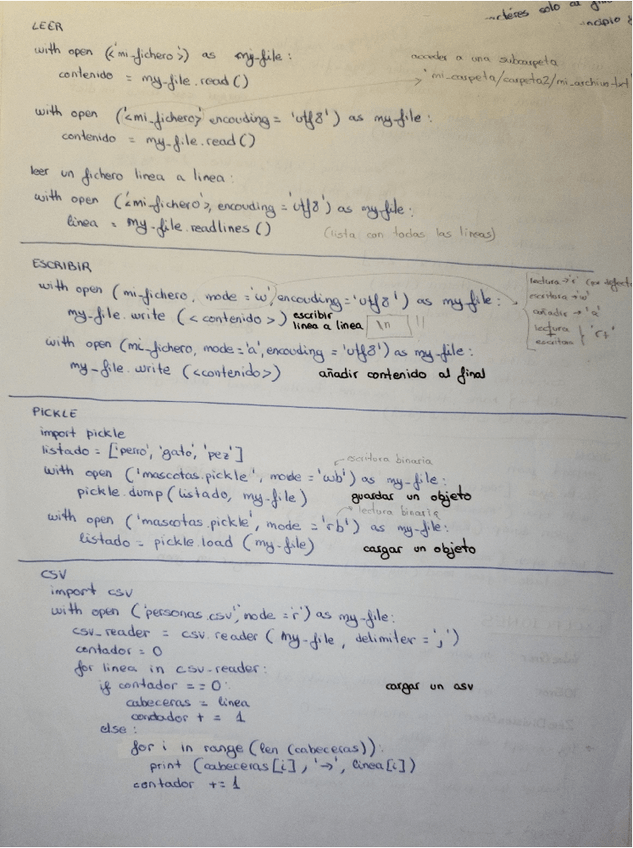 solo al
LEER
with open (<mi-fichero>) as my-file:
contenido = my-file.read()
acceder a una subcarpeta
'mi_carpeta/carpeta2/mi_archivo.txt'
with open ('<mi_fichero>' encouding = 'utf8') as my-file:
contenido = my-file.read()
leer un fichero linea a linea:
with open ('<mi-fichero>, encouding = 'utf8') as my-file:
linea = my-file.readlines()
(lista con todas las lineas)
ESCRIBIR
with open (mi-fichero, mode = 'w', encouding = 'utf8') as my-file:
my-file.write (<contenido>) escribir linea a linea \n !!
lectura → 'r' (por defecto)
escritura → 'w'
añadir → 'a'
lectura + escritura } 'r+'
with open (mi-fichero, mode = 'a', encouding = 'utf8') as my-file:
my-file.write (<contenido>) añadir contenido al final
PICKLE
import pickle
listado = ['perro', 'gato', 'pez']
escritura binaria
with open ('mascotas.pickle', mode = 'wb') as my-file:
pickle.dump (listado, my-file) guardar un objeto
lectura binaria
with open ('mascotas.pickle', mode = 'rb') as my-file:
listado = pickle.load (my-file) cargar un objeto
CSV
import csv
with open ('personas.csv', mode = 'r') as my-file:
csv_reader = csv.reader (my-file, delimiter = ',')
contador = 0
for linea in csv-reader:
if contador == 0: cargar un csv
cabeceras = linea
contador += 1
else:
for i in range (len (cabeceras)):
print (cabeceras[i], '→', linea[i])
contador += 1